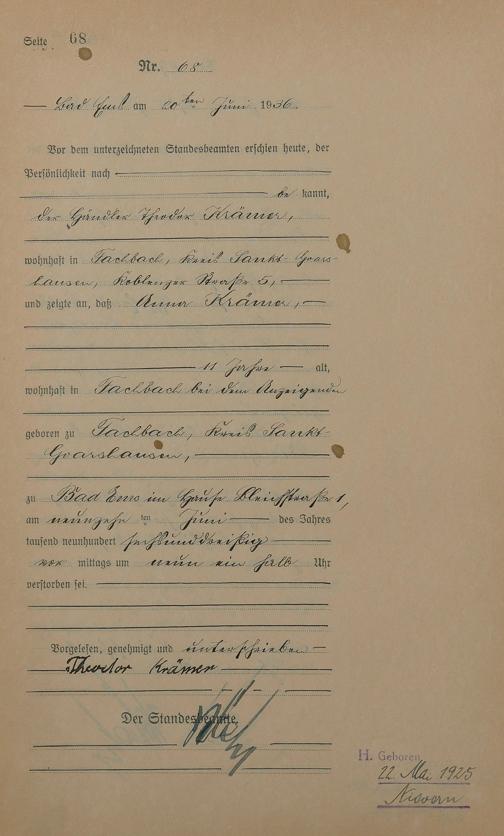 Seite 68
Nr. 68
Bad Ems am 20ten Juni 1936.
Vor dem unterzeichneten Standesbeamten erschien heute, der
Persönlichkeit nach
be kannt,
der Händler Theodor Krämer,
wohnhaft in Fachbach, Kreis Sankt Goars-
hausen, Koblenzer Straße 5,
und zeigte an, daß Anna Krämer,
11 Jahre alt,
wohnhaft in Fachbach bei dem Anzeigenden
geboren zu Fachbach, Kreis Sankt-
Goarshausen,
zu Bad Ems im Hause Bleichstraße 1,
am neunzehn ten Juni des Jahres
tausend neunhundert sechsunddreißig
vor mittags um neun ein halb Uhr
verstorben sei.
Vorgelesen, genehmigt und unterschrieben
Theodor Krämer
Der Standesbeamte.
H. Geboren
22. Mai 1925
Nievern